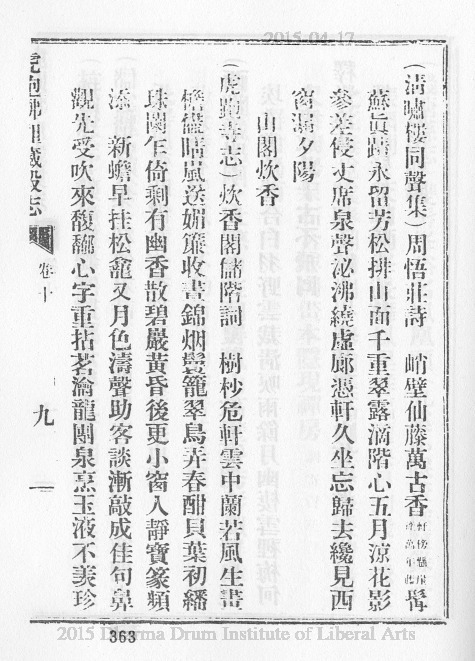 2015.04.17
(淸嘯樓同聲集)周悟莊詩 峭壁仙藤萬古香
蘇眞蹟永留芳松排山面千重翠露滴階心五月涼花影
參差侵丈席泉聲泌沸繞虛廊憑軒久坐忘歸去纔見西
窗漏夕陽
山閣炊香
(虎跑寺志)炊香閣儲階詞 樹杪危軒雲中蘭若風生畫
檐儘晴嵐送媚簾收畫錦烟鬟籠翠鳥弄春酣貝葉初繙
珠闌乍倚剩有幽香散碧巖黃昏後更小窗人靜寶篆頻
添 新蟾早挂松龕又月色濤聲助客談漸敲成佳句鼻
觀先受吹來馥郁心字重拈茗瀹龍團泉烹玉液不羨珍
虎跑佛祖藏殿志
卷十
九
363
2015 Dharma Drum Institute of Liberal Arts